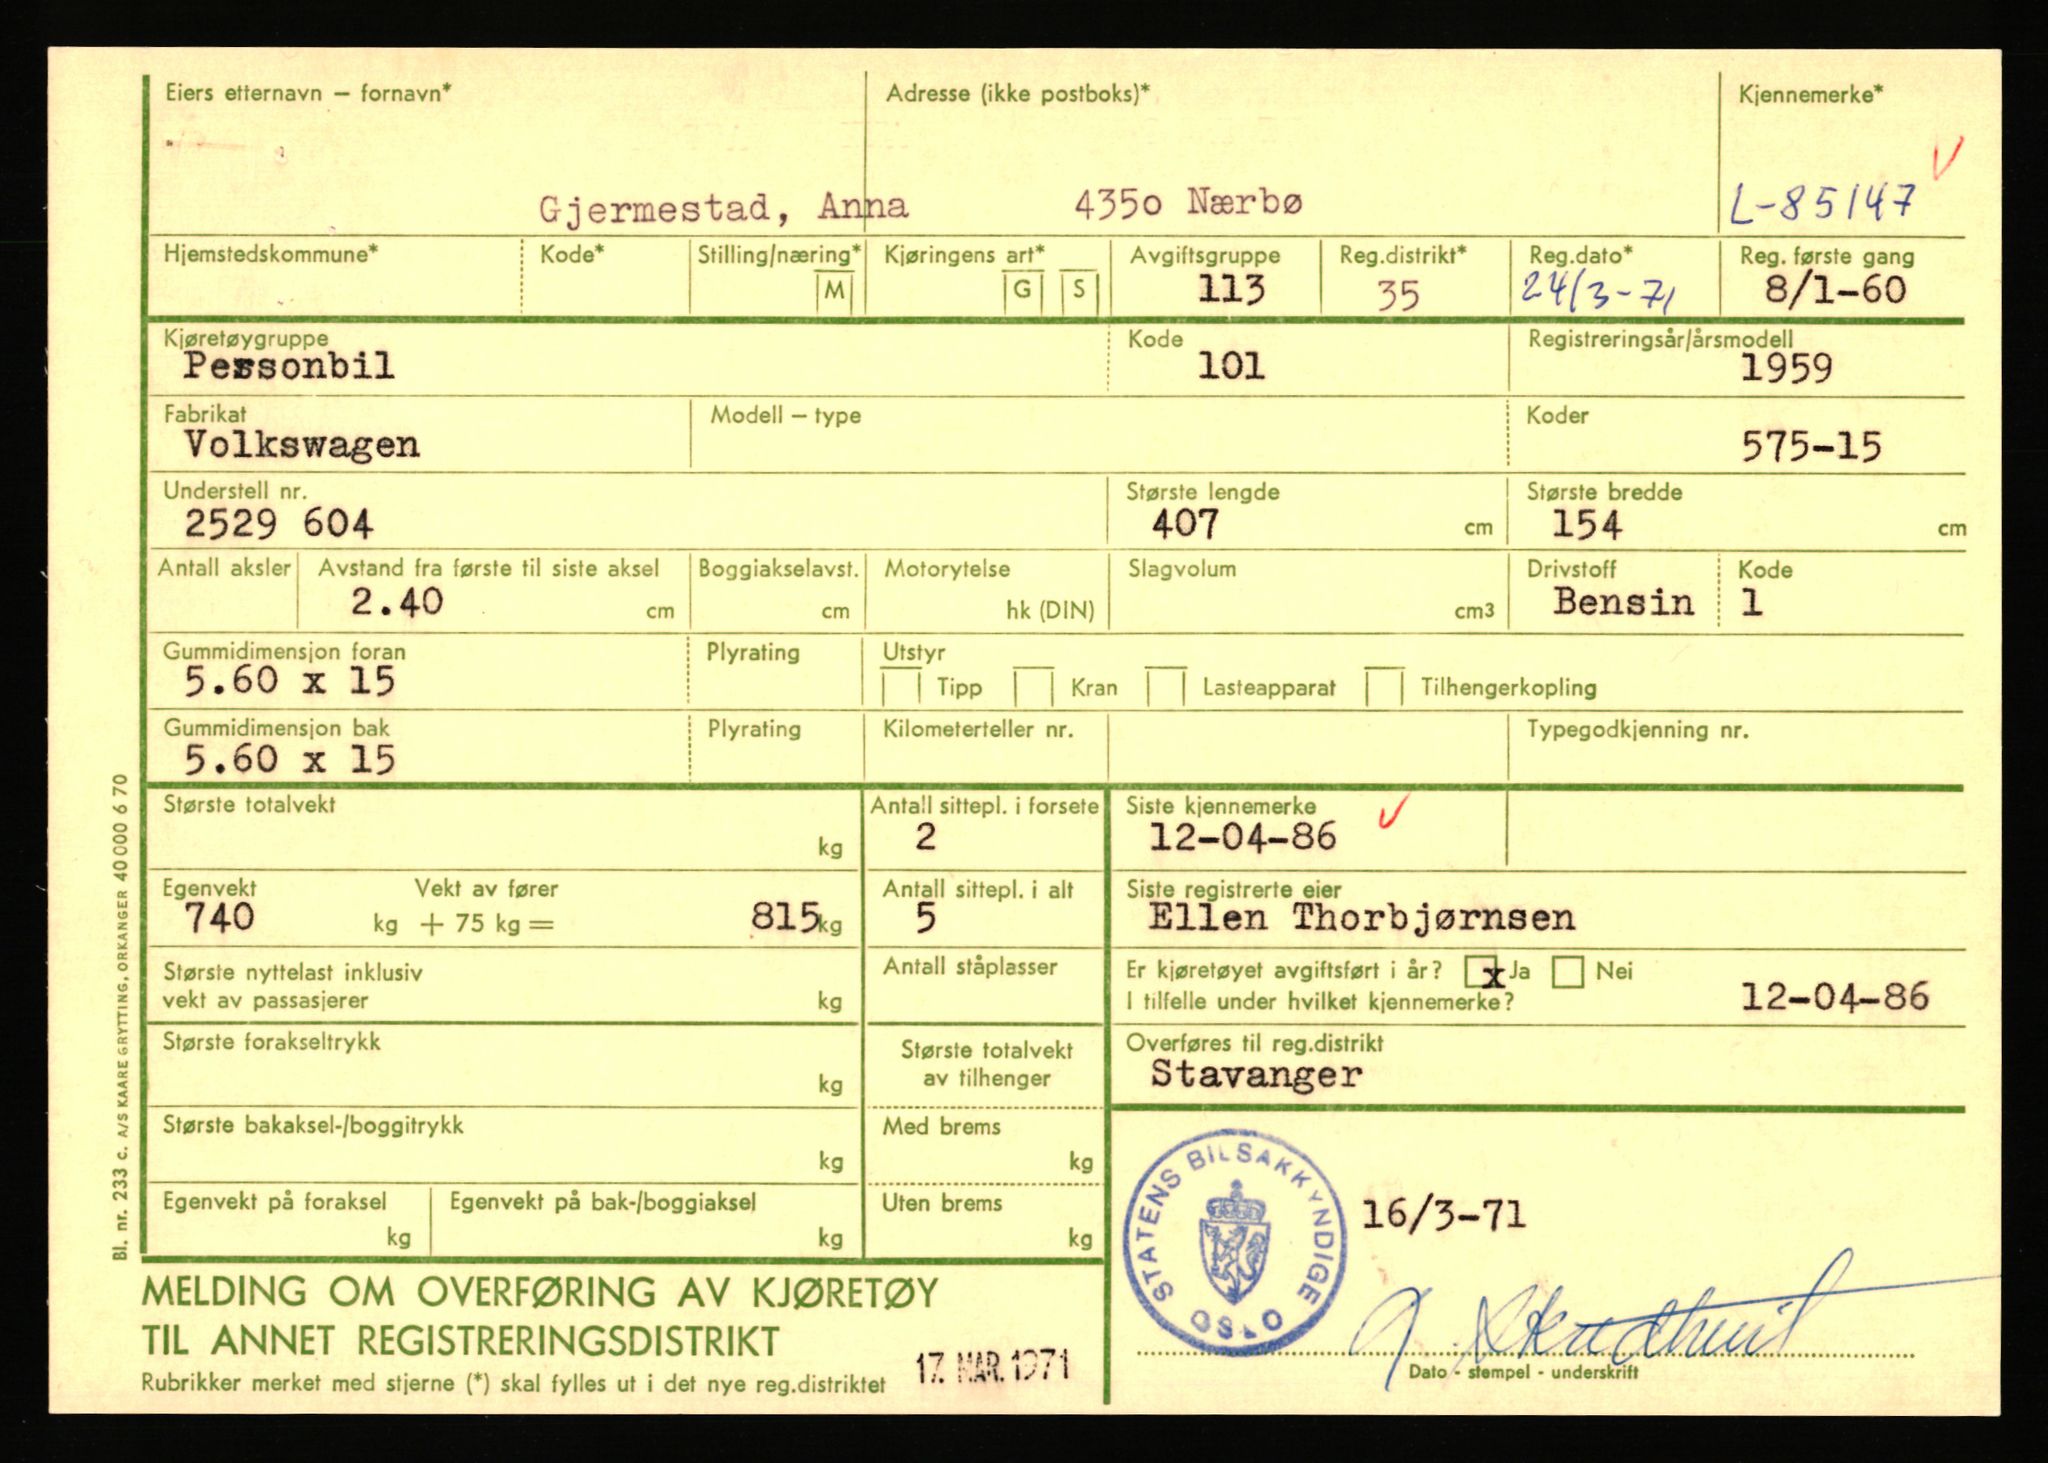 Eiers etternavn – fornavn* Adresse (ikke postboks)* Kjennemerke*
Gjermestad, Anna 4350 Nærbø L-85147
Hjemstedskommune* Kode* Stilling/næring* Kjøringens art* Avgiftsgruppe Reg.distrikt* Reg.dato* Reg. første gang
M G S 113 35 24/3-71 8/1-60
Kjøretøygruppe Kode Registreringsår/årsmodell
Personbil 101 1959
Fabrikat Modell – type Koder
Volkswagen 575-15
Understell nr. Største lengde Største bredde
2529 604 407 cm 154 cm
Antall aksler Avstand fra første til siste aksel Boggiakselavst. Motorytelse Slagvolum Drivstoff Kode
2.40 cm cm hk (DIN) cm3 Bensin 1
Gummidimensjon foran Plyrating Utstyr
5.60 x 15 Tipp Kran Lasteapparat Tilhengerkopling
Gummidimensjon bak Plyrating Kilometerteller nr. Typegodkjenning nr.
5.60 x 15
Største totalvekt Antall sittepl. i forsete Siste kjennemerke
kg 2 12-04-86
Egenvekt Vekt av fører Antall sittepl. i alt Siste registrerte eier
740 kg + 75 kg = 815 kg 5 Ellen Thorbjørnsen
Største nyttelast inklusiv Antall ståplasser Er kjøretøyet avgiftsført i år? x Ja Nei
vekt av passasjerer kg I tilfelle under hvilket kjennemerke? 12-04-86
Største forakseltrykk Største totalvekt Overføres til reg.distrikt
kg av tilhenger Stavanger
Største bakaksel-/boggitrykk Med brems
kg kg
Egenvekt på foraksel Egenvekt på bak-/boggiaksel Uten brems
kg kg kg
STATENS BILSAKKYNDIGE
OSLO
16/3-71
MELDING OM OVERFØRING AV KJØRETØY
TIL ANNET REGISTRERINGSDISTRIKT
Rubrikker merket med stjerne (*) skal fylles ut i det nye reg.distriktet
17. MAR. 1971
Dato - stempel - underskrift
Bl. nr. 233 c. A/S KAARE GRYTTING, ORKANGER 40 000 6 70